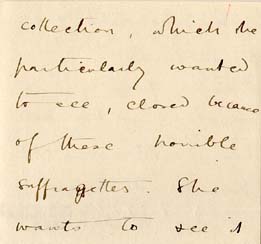 collection, which she
particularly wanted
to see, closed because
of these horrible
suffragettes. She
wants to see it